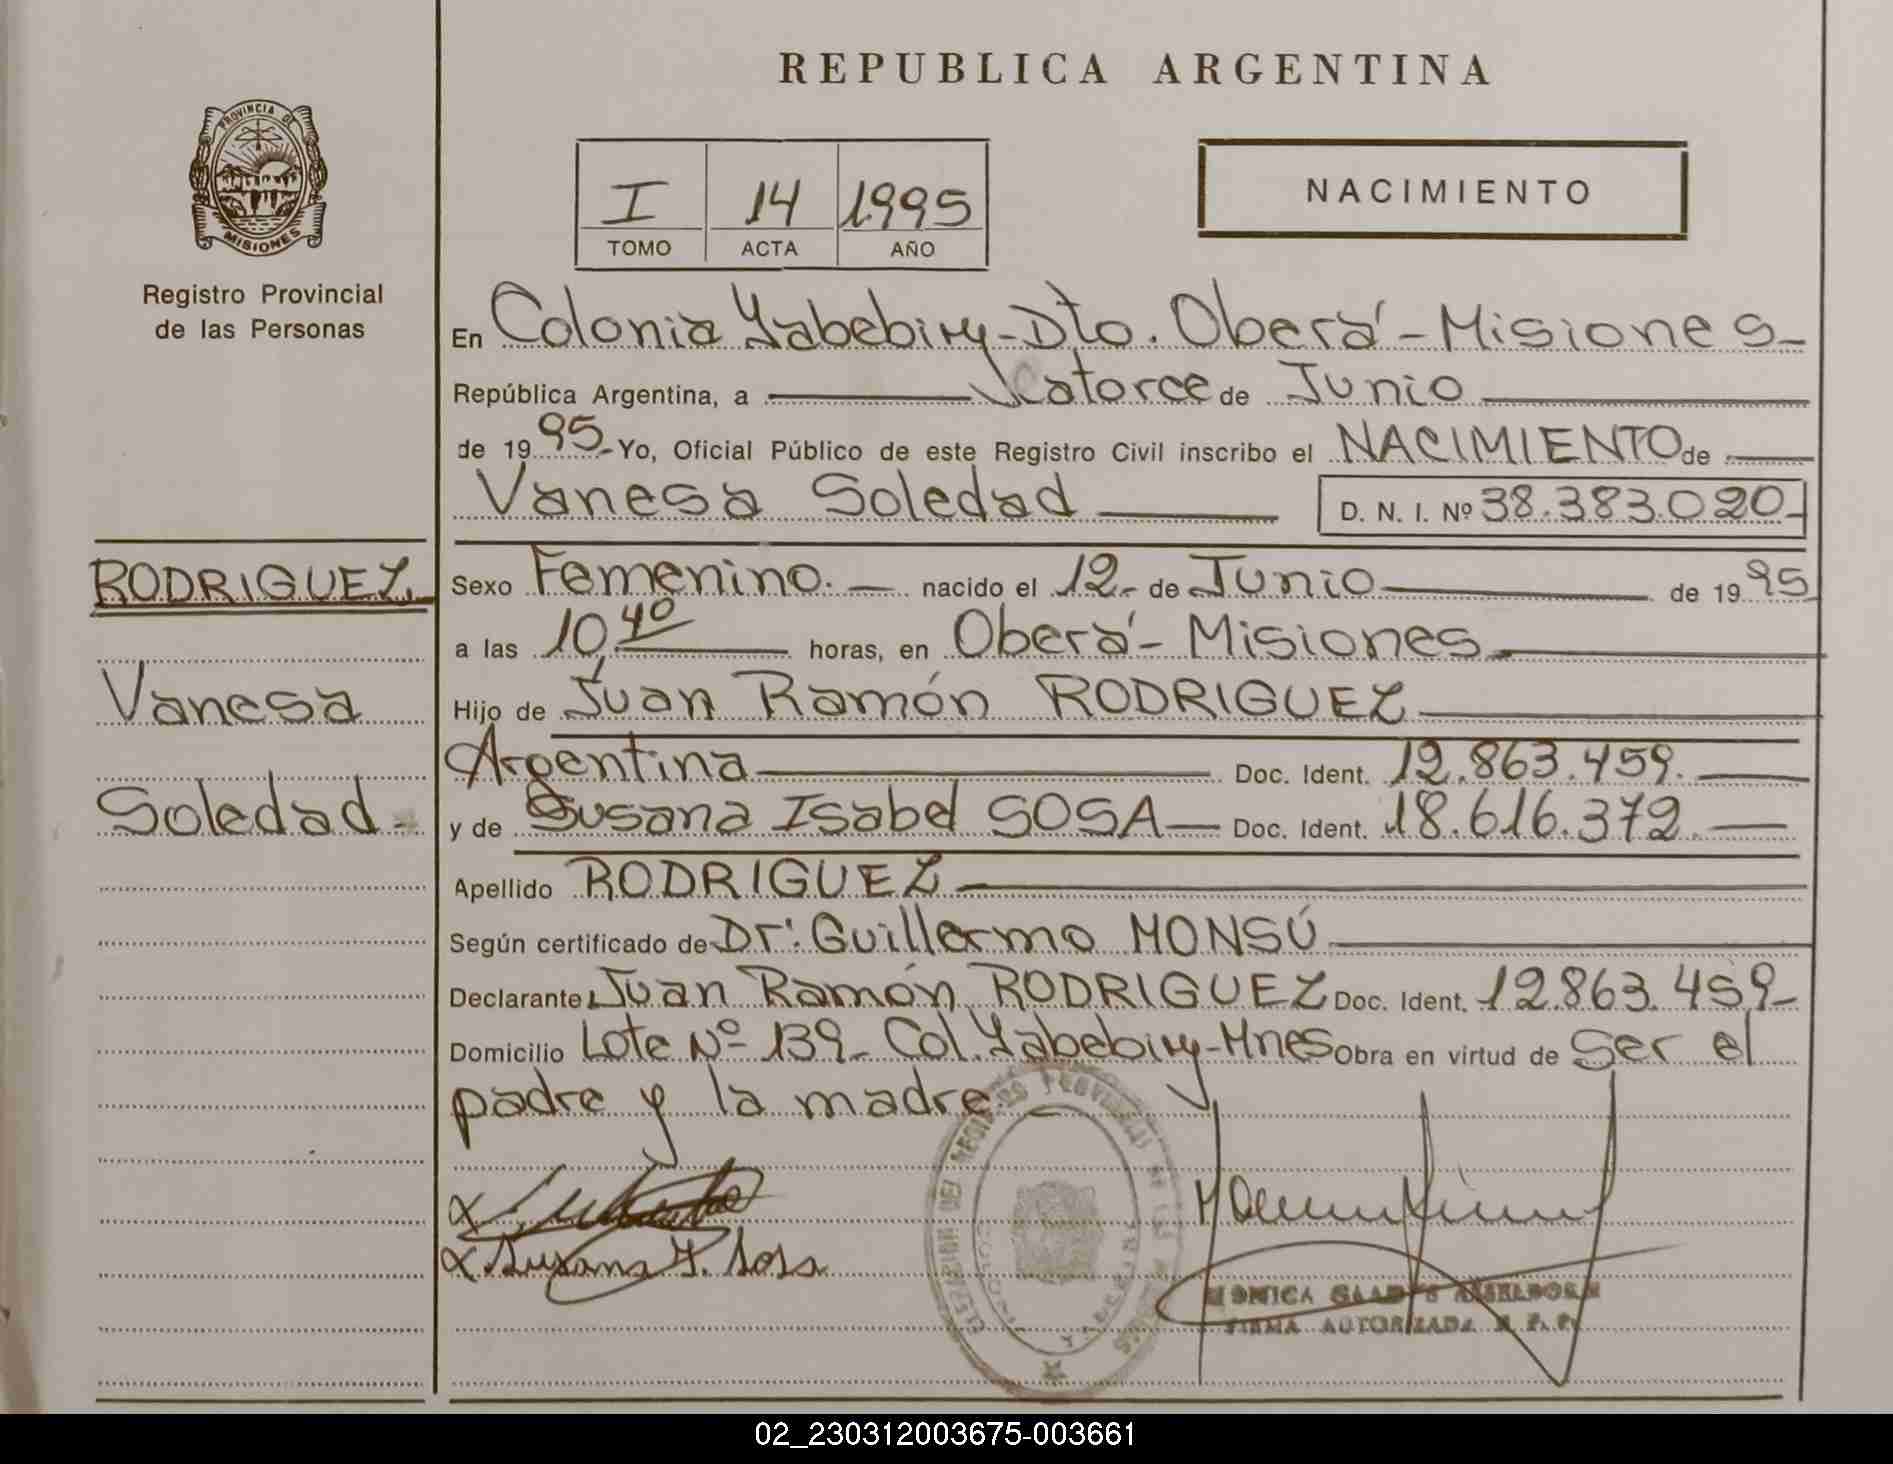 REPUBLICA ARGENTINA
PROVINCIA DE
MISIONES
Registro Provincial
de las Personas
I 14 1995
TOMO ACTA AÑO
NACIMIENTO
En Colonia Yabebiry-Dto. Oberá-Misiones-
República Argentina, a Catorce de Junio
de 1995-Yo, Oficial Público de este Registro Civil inscribo el NACIMIENTO de
Vanesa Soledad D. N. I. Nº 38.383.020-
RODRIGUEZ
Vanesa
Soledad-
Sexo Femenino.- nacido el 12- de Junio de 1995
a las 10,40 horas, en Oberá-Misiones
Hijo de Juan Ramón RODRIGUEZ
Argentina Doc. Ident. 12.863.459.
y de Susana Isabel SOSA Doc. Ident. 18.616.372.
Apellido RODRIGUEZ
Según certificado de Dr. Guillermo MONSÚ
Declarante Juan Ramón RODRIGUEZ Doc. Ident. 12.863.459-
Domicilio Lote Nº 139- Col. Yabebiry-Mnes Obra en virtud de Ser el
padre y la madre-
x
x Susana I. Sosa
MONICA
FIRMA AUTORIZADA R. P. P.
02_230312003675-003661